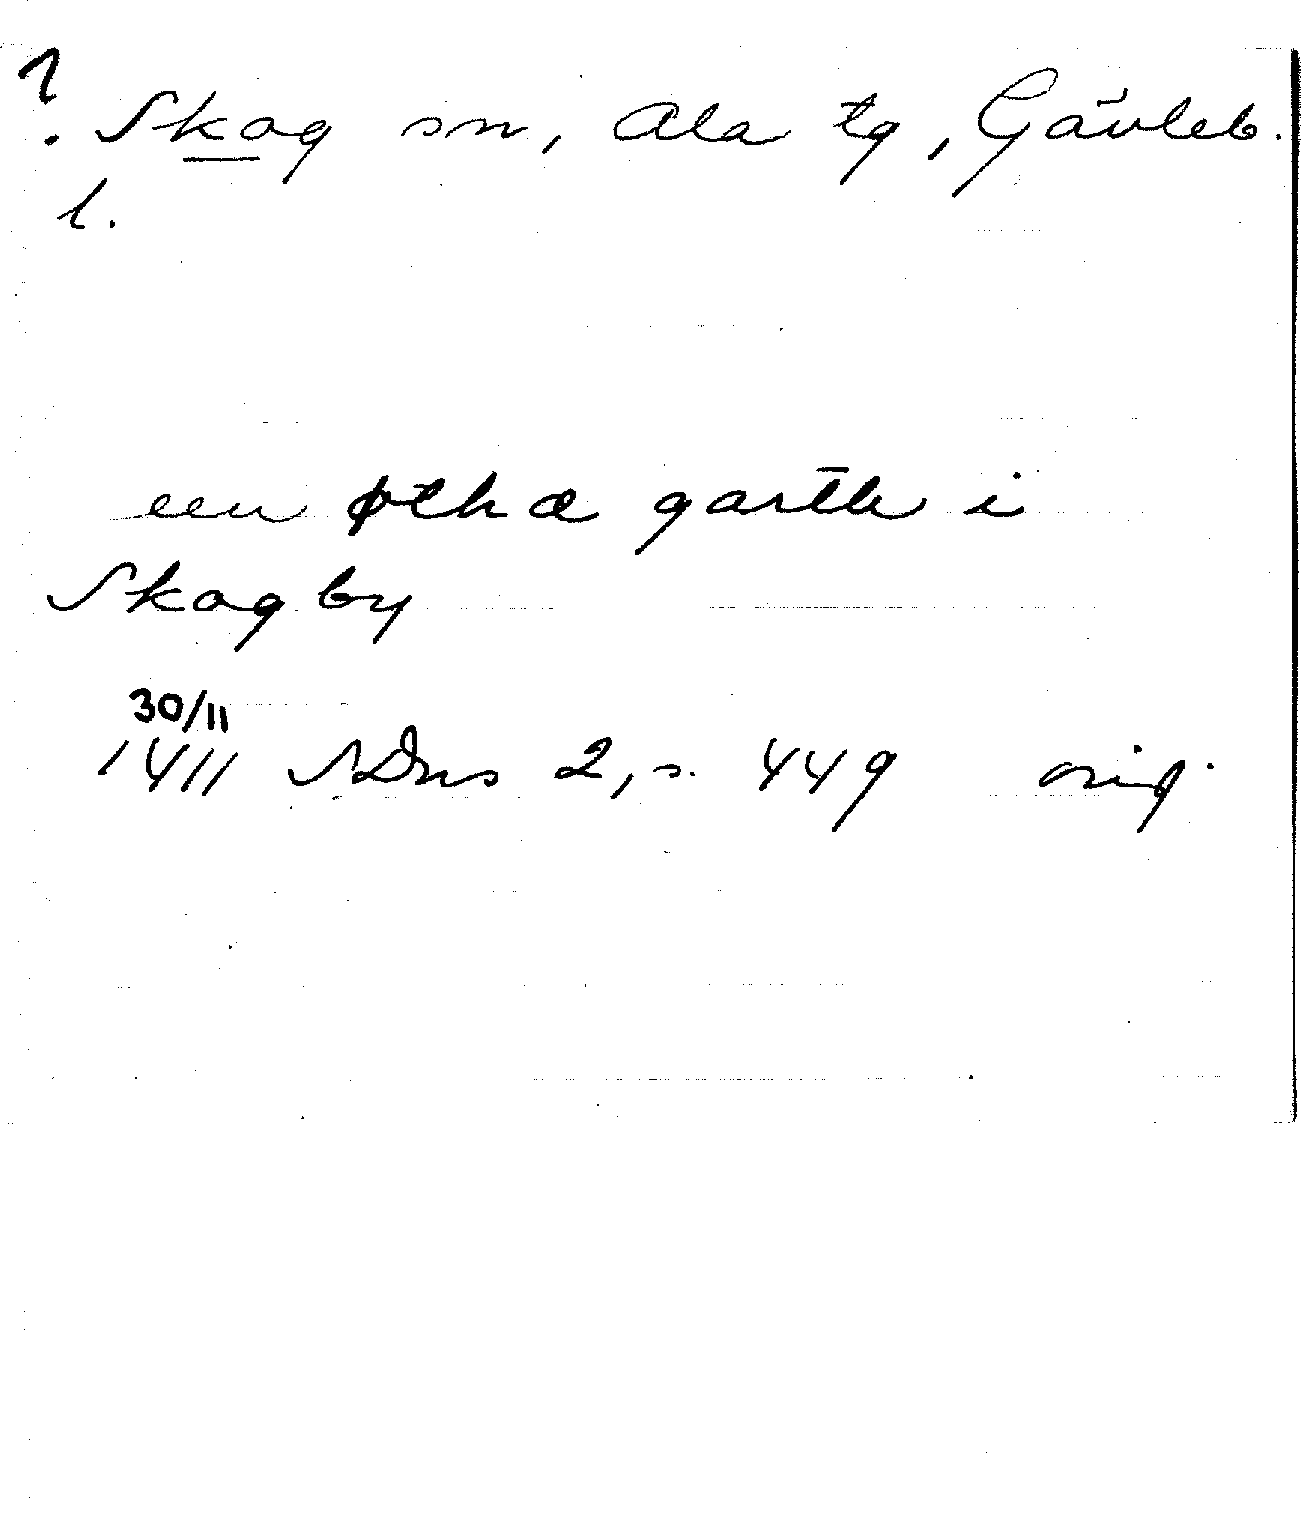 ? Skog sn, Ala tg, Gävleb.
l.
een øthæ garth i
Skogby
30/11
1411 SDns 2, s. 449 orig.